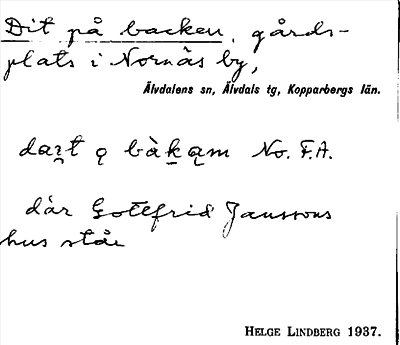 Dit på backen, gårds-
plats i Nornäs by,
Älvdalens sn, Älvdals tg, Kopparbergs län.
daʒt ǫ bàkąm No. F.A.
där Gottfrid Janssons
hus står
HELGE LINDBERG 1937.